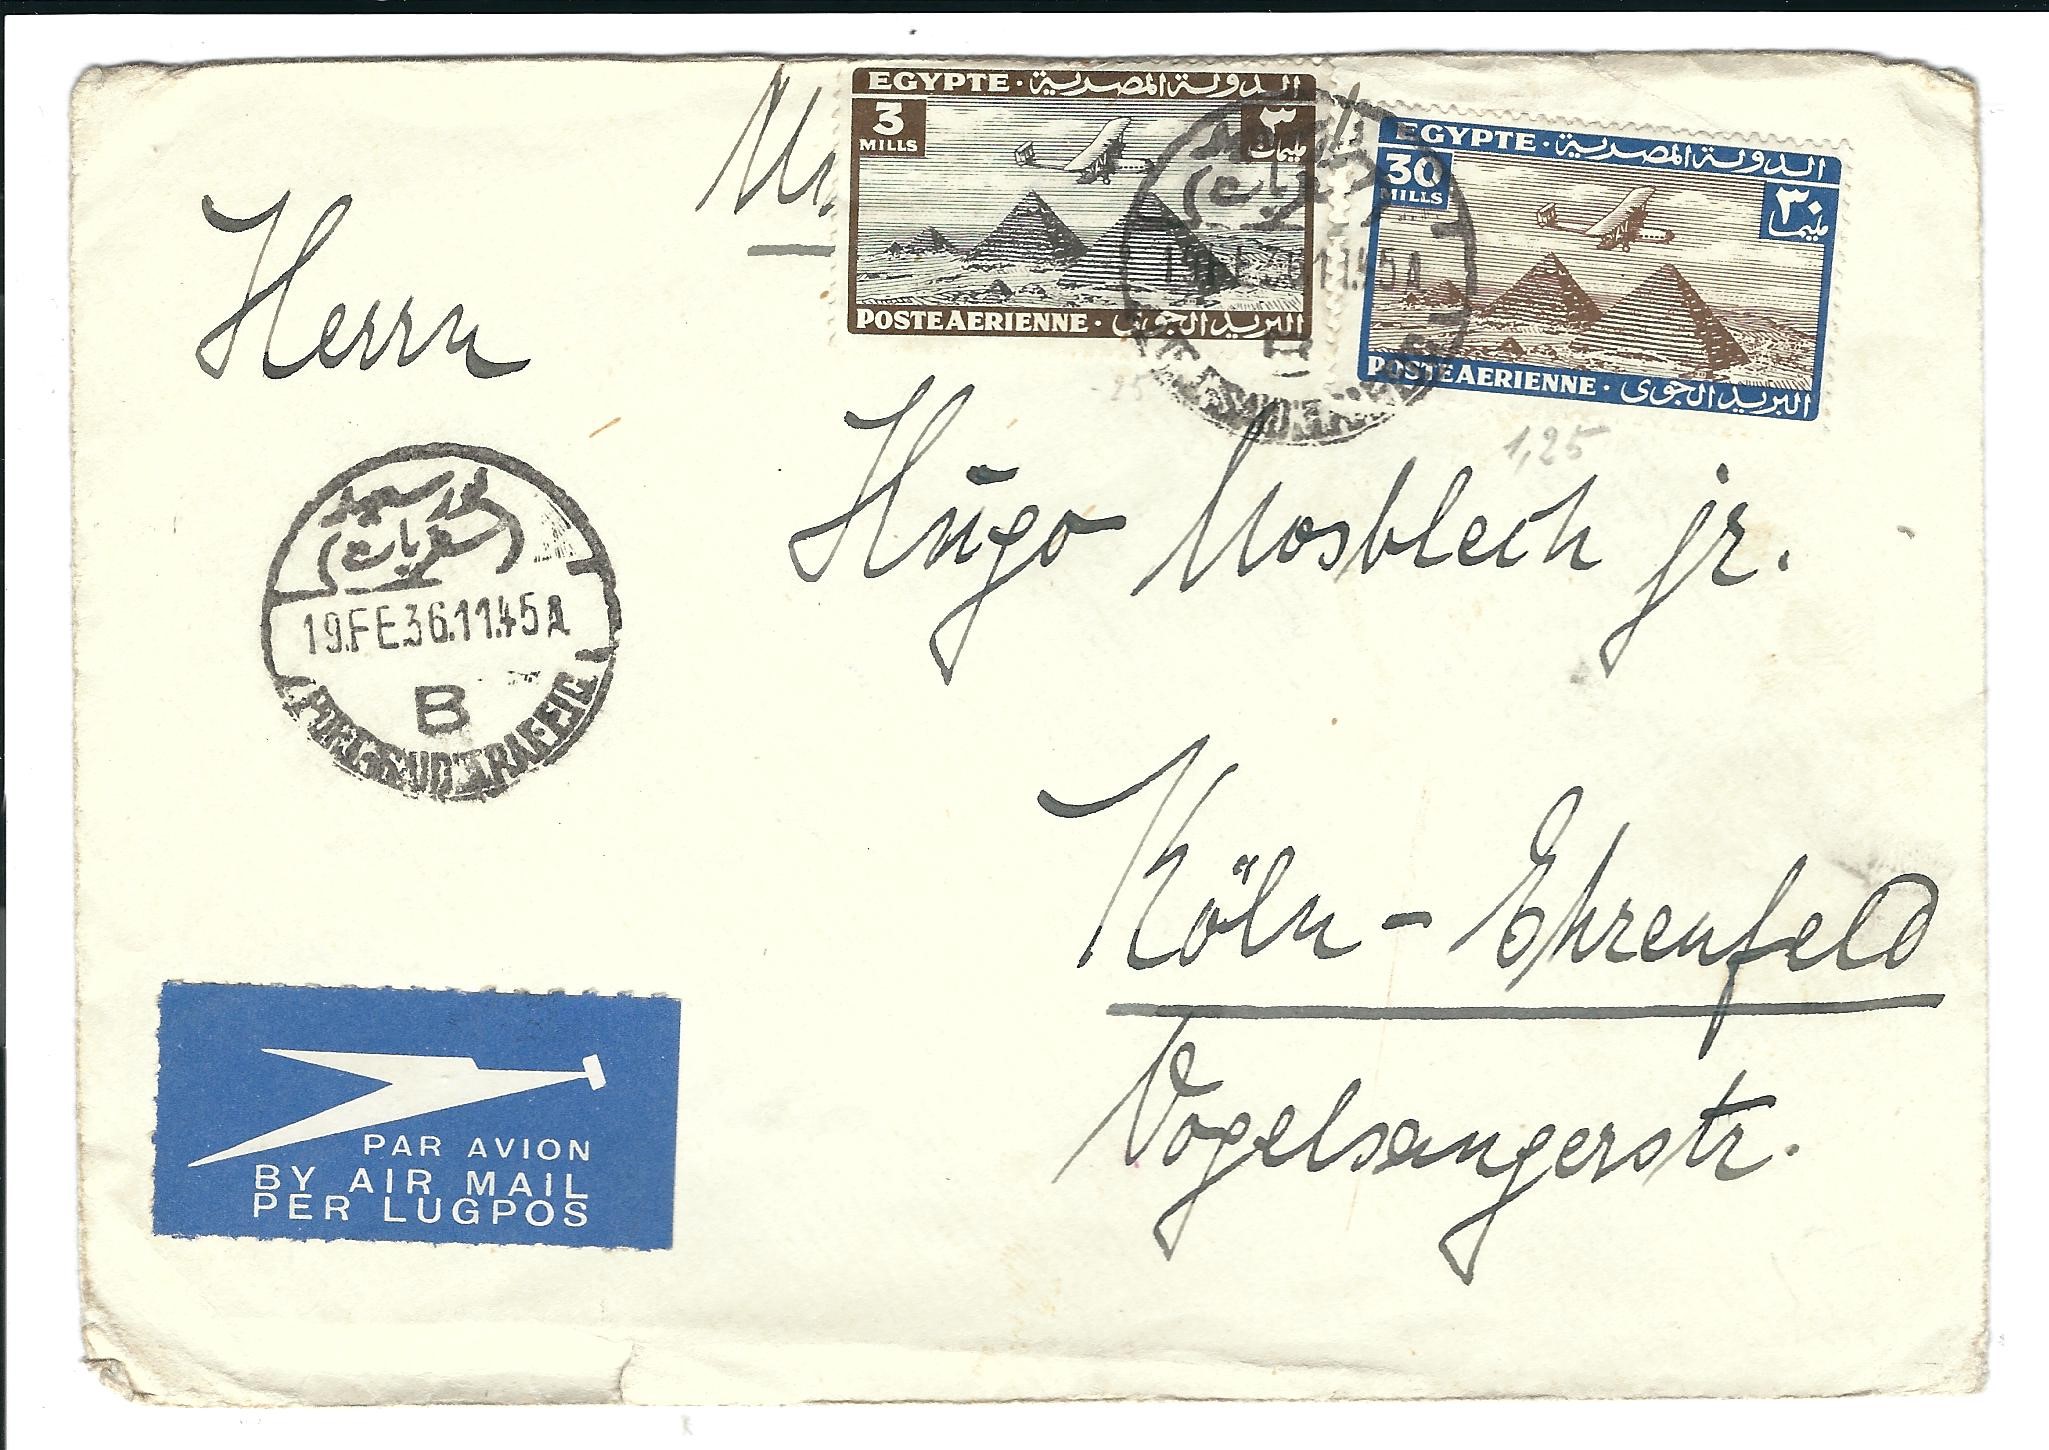 EGYPTE · الدولة المصرية
3
MILLS
٣
مليمات
POSTE AERIENNE · البريد الجوى
EGYPTE · الدولة المصرية
30
MILLS
٣٠
مليما
POSTE AERIENNE · البريد الجوى
19.FE36.11.45A
Herrn
Hugo Mosblech jr.
Köln-Ehrenfeld
Vogelsangerstr.
1,25
25
بور سعيد
19.FE36.11.45A
B
PAR AVION
BY AIR MAIL
PER LUGPOS